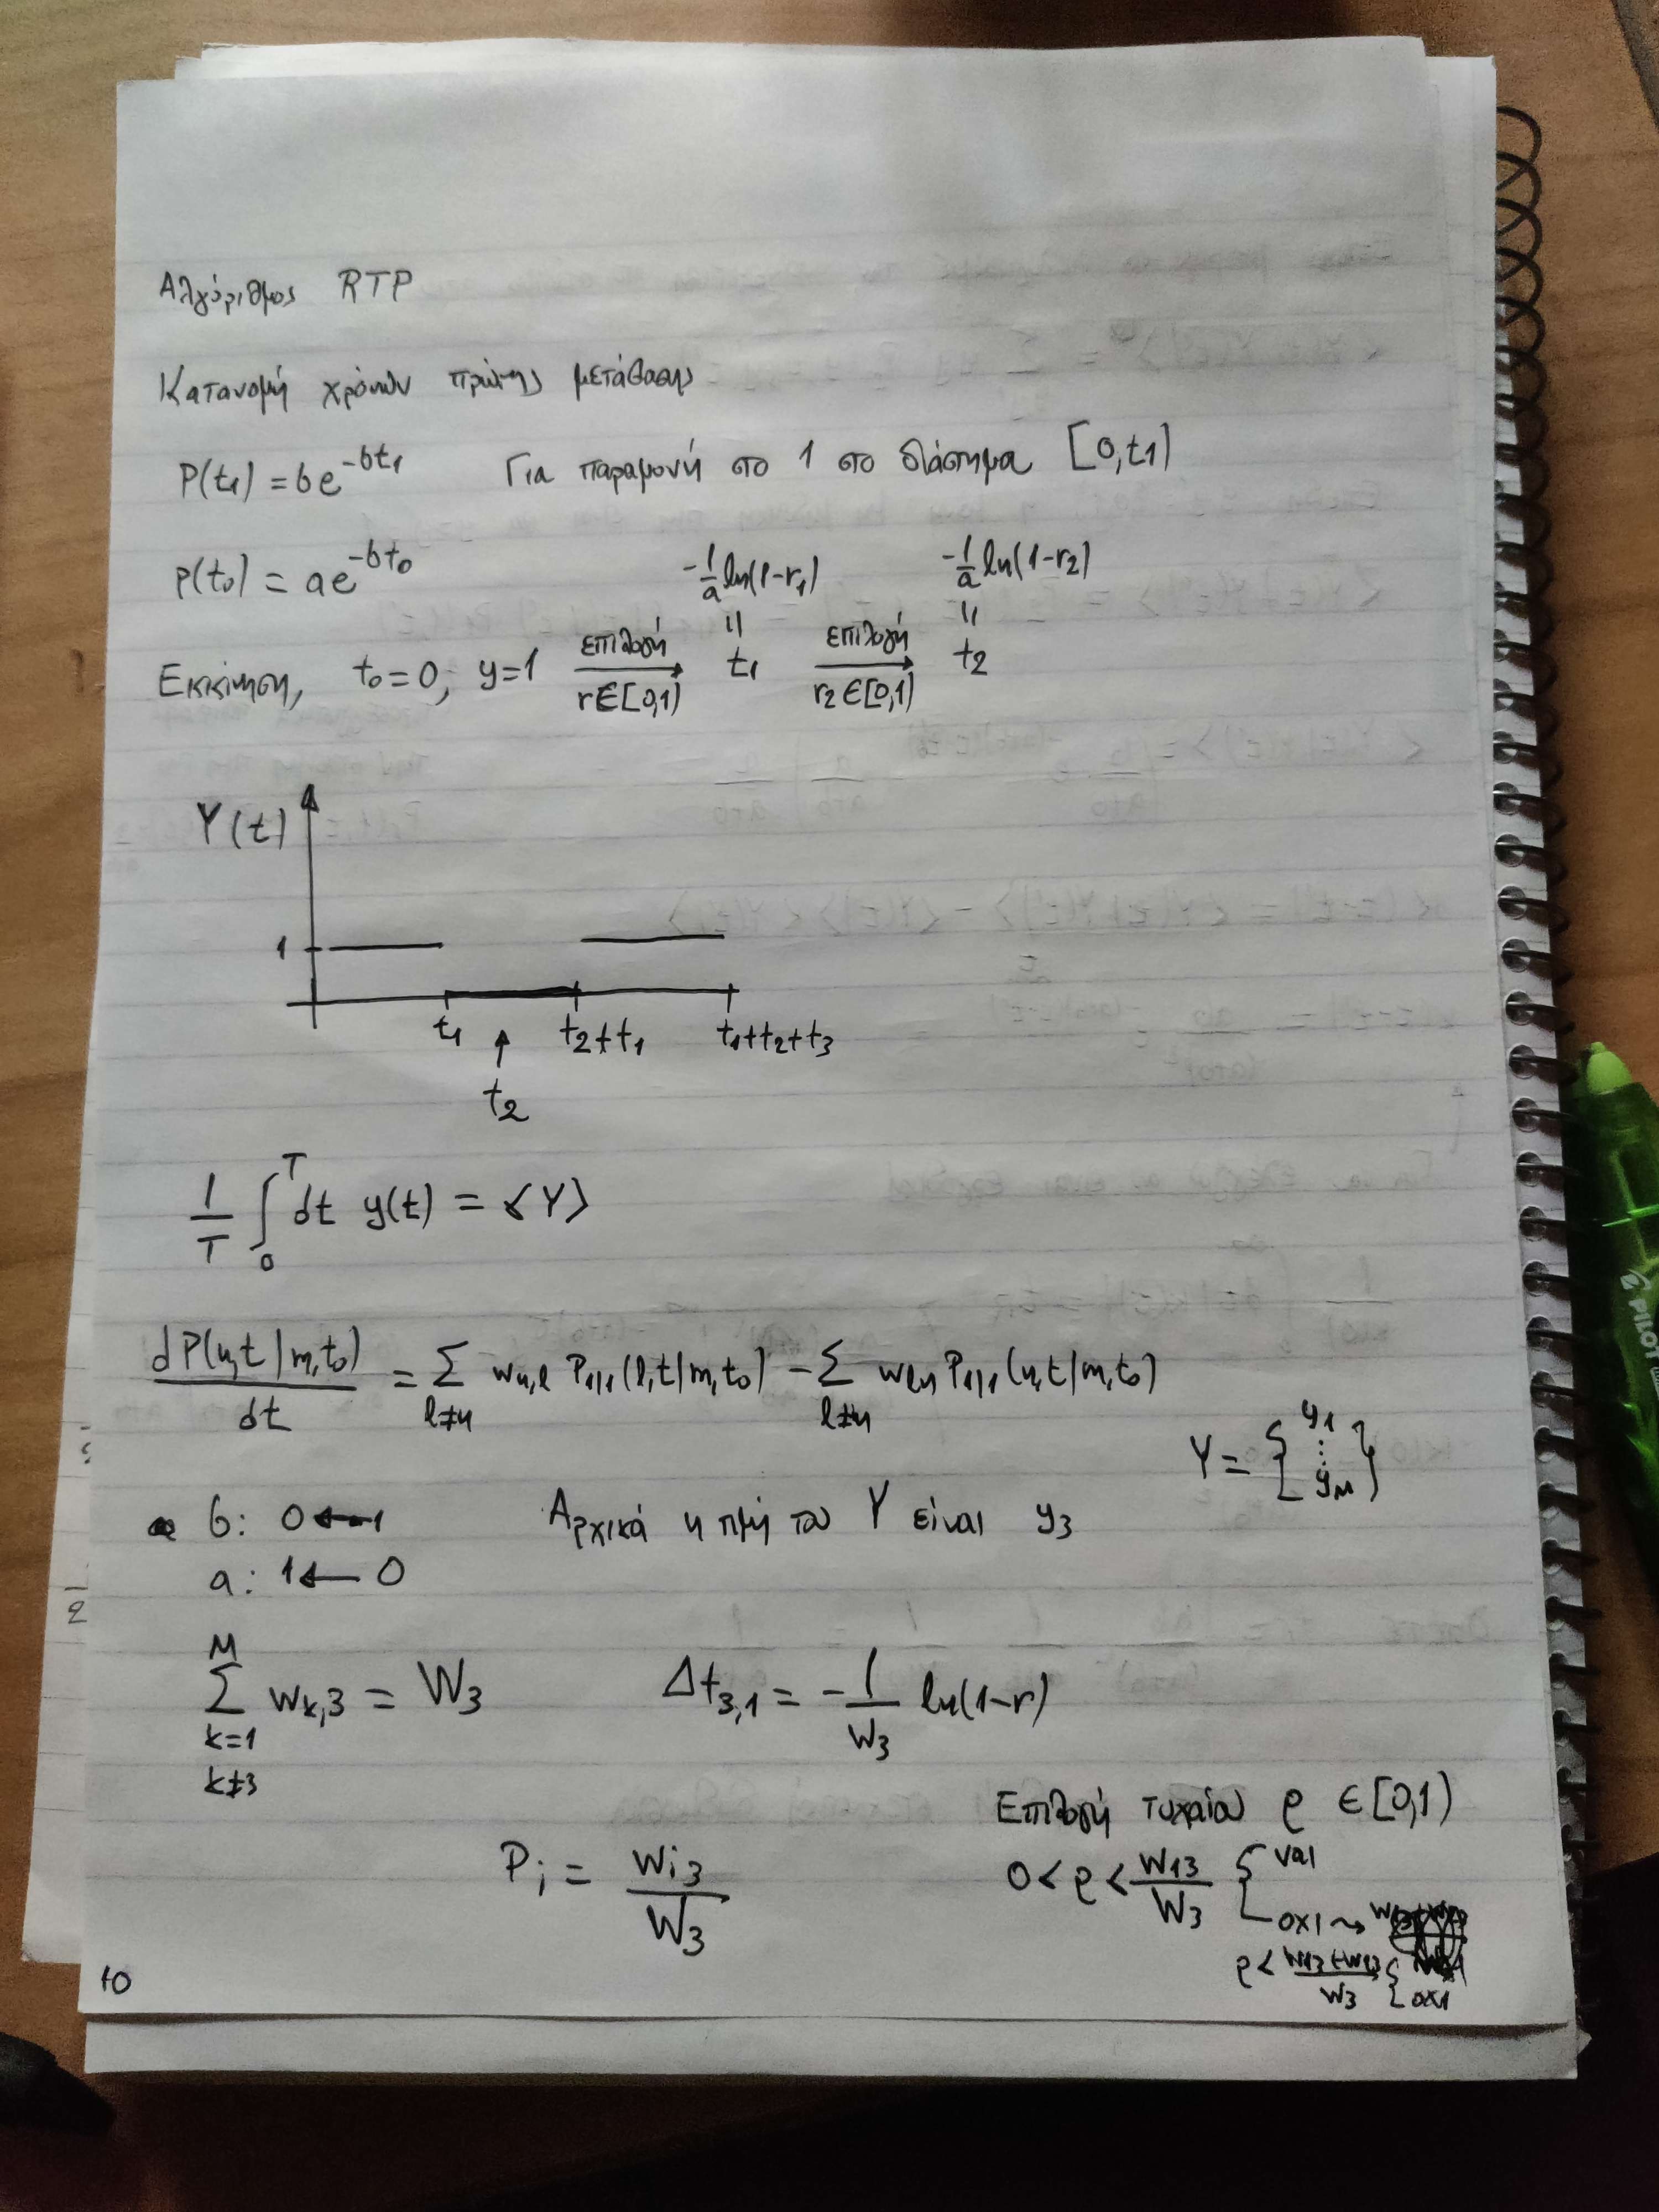 Αλγόριθμος RTP
Κατανομή χρόνων πρώτης μετάβασης
P(t₁) = be^{-bt₁} Για παραμονή στο 1 στο διάστημα [0,t₁]
P(t₀) = ae^{-bt₀}
-1/a ln(1-r₁) -1/a ln(1-r₂)
Εκκίνηση, t₀=0, y=1 επιλογή r∈[0,1) → t₁ επιλογή r₂∈[0,1) → t₂
Y(t)
1
t₁ t₂+t₁ t₁+t₂+t₃
t₂
1/T ∫₀ᵀ dt y(t) = <Y>
dP(n,t|m,t₀)/dt = Σ_{l≠n} w_{n,l} P_{1|1}(l,t|m,t₀) - Σ_{l≠n} w_{ln} P_{1|1}(n,t|m,t₀)
Y = { y₁ ⋮ y_M }
b: 0←1 Αρχικά η τιμή του Y είναι y₃
a: 1←0
Σ_{k=1, k≠3}^{M} w_{k,3} = W₃ Δt_{3,1} = -1/W₃ ln(1-r)
Επιλογή τυχαίου ρ ∈[0,1)
P_i = w_{i3}/W₃ 0<ρ<w₁₃/W₃ { ναι
οχι →
ρ< w₁₃+w₂₃/W₃ { οχι
10
PILOT